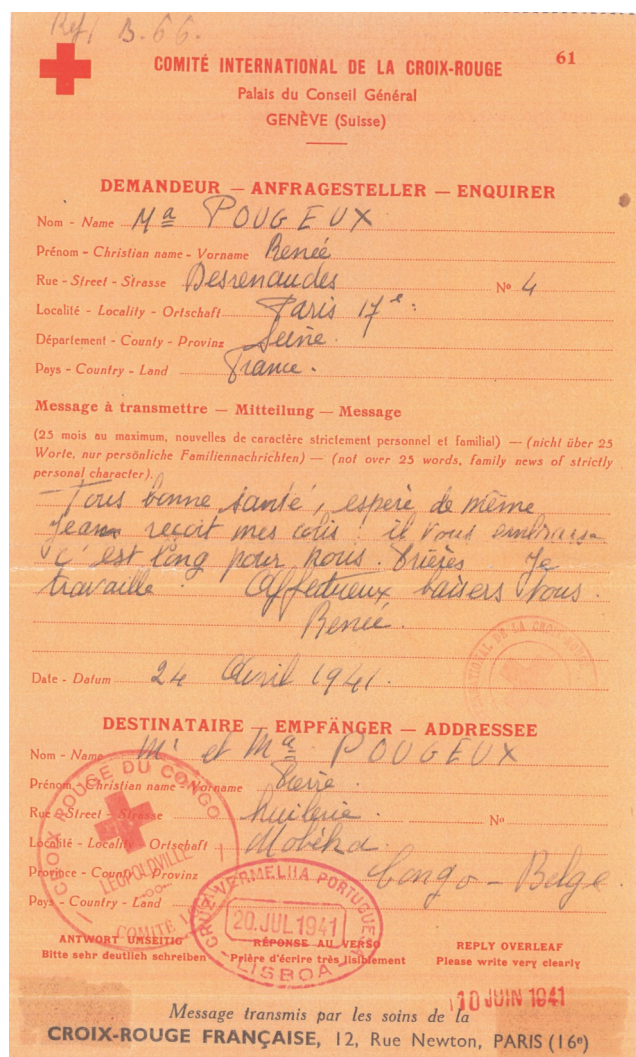 Ref/ B.66.
61
COMITÉ INTERNATIONAL DE LA CROIX-ROUGE
Palais du Conseil Général
GENÈVE (Suisse)
DEMANDEUR — ANFRAGESTELLER — ENQUIRER
Nom - Name Ma POUGEUX
Prénom - Christian name - Vorname Renée
Rue - Street - Strasse Desrenaudes No 4
Localité - Locality - Ortschaft Paris 17e
Département - County - Provinz Seine.
Pays - Country - Land France.
Message à transmettre — Mitteilung — Message
(25 mois au maximum, nouvelles de caractère strictement personnel et familial) — (nicht über 25
Worte, nur persönliche Familiennachrichten) — (not over 25 words, family news of strictly
personal character).
Tous bonne santé, espère de même
Jean reçoit mes colis ! il vous embrasse
c'est long pour nous. Prières Je
travaille. Affectueux baisers Vous.
Renée.
INTERNATIONAL DE LA CROIX-ROUGE
Date - Datum 24 Avril 1941.
DESTINATAIRE — EMPFÄNGER — ADDRESSEE
Nom - Name Mr et Ma POUGEUX
Prénom - Christian name - Vorname Pierre.
Rue - Street - Strasse huilerie. No
Localité - Locality - Ortschaft Mobéka
Province - County - Provinz Congo - Belge.
Pays - Country - Land
CROIX ROUGE DU CONGO
LEOPOLDVILLE
COMITE
CRUZ VERMELHA PORTUGUESA
20. JUL 1941
LISBOA
ANTWORT UMSEITIG RÉPONSE AU VERSO REPLY OVERLEAF
Bitte sehr deutlich schreiben Prière d'écrire très lisiblement Please write very clearly
10 JUIN 1941
Message transmis par les soins de la
CROIX-ROUGE FRANÇAISE, 12, Rue Newton, PARIS (16e)